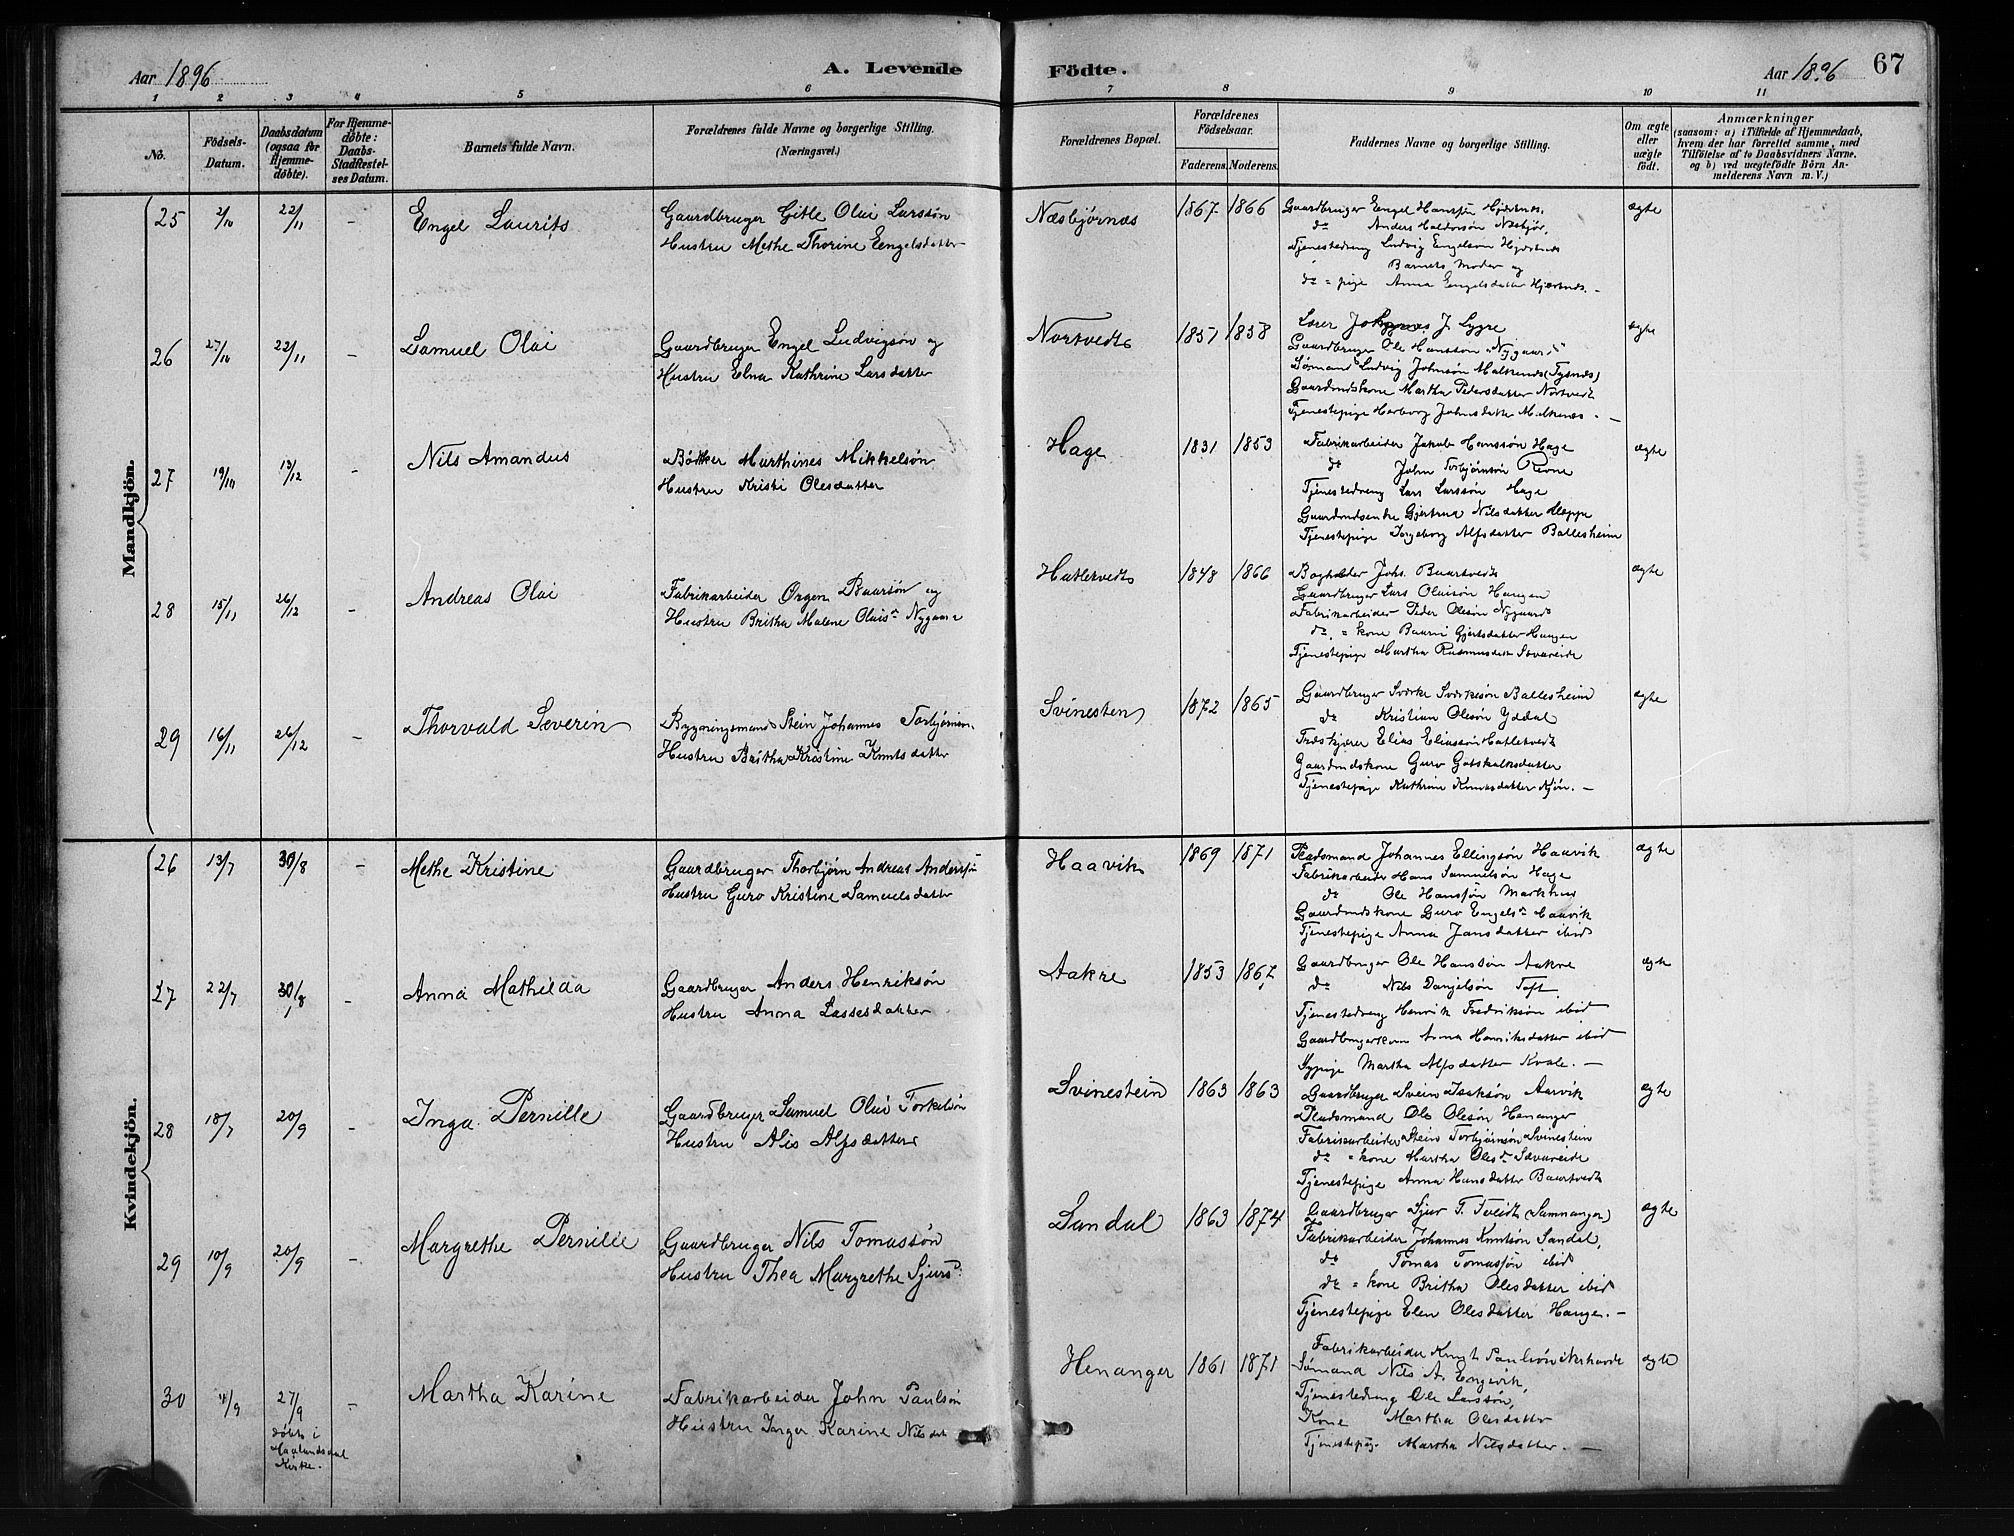 Aar 1896
A. Levende
Födte.
Aar 1896
67
1 2 3 4 5 6 7 8 9 10 11
No.
Födsels-Datum.
Daabsdatum (ogsaa for Hjemme-döbte).
For Hjemme-döbte: Daabs-Stadfæstel-ses Datum.
Barnets fulde Navn.
Forældrenes fulde Navne og borgerlige Stilling.
(Næringsvei.)
Forældrenes Bopæl.
Forældrenes Födselsaar.
Faderens. Moderens.
Faddernes Navne og borgerlige Stilling.
Om ægte eller uægte födt.
Anmærkninger
(saasom: a) i Tilfælde af Hjemmedaab, hvem der har forrettet samme, med Tilföielse af to Daabsvidners Navne. og b) ved uægtefödte Börn An-melderens Navn m. V.)
Mandkjön.
25 2/10 22/11 - Engel Laurits
Gaardbruger Gitle Olai Larssön
Hustru Methe Thorine Eengelsdatter
Næsbjørnæs 1867 1866
Gaardbruger Engel Hanssön Hjertnæs.
do Anders Haldorsön Næsbjør,
Tjenestedreng Ludvig Engelsøn Hjertnæs
Barnets Moder og
do = pige Anna Engelsdatter Hjertnæs. -
ægte
26 27/10 22/11 - Samuel Olai
Gaardbruger Engel Ludvigsøn og
Hustru Elna Kathrine Larsdatter
Nortvedt 1857 1858
Lærer Johannes J. Lygre
Gaardbruger Ole Hanssøn "Nygaard"
Sømand Ludvig Johnsøn Malkenæs (Tysnæs)
Gaardmdskone Martha Pedersdatter Nortvedt
Tjenestepige Herborg Johnsdatter Malkenæs. -
ægte
27 19/10 13/12 - Nils Amandus
Bødker Marthines Mikkelsøn
Hustru Kristi Olesdatter
Hage 1831 1853
Fabrikarbeider Jakob Hanssøn Hage
do John Torbjørnsøn Revne
Tjenestedreng Lars Larssøn Hage
Gaardmdsenke Gjertrud Nilsdatter Kleppe
Tjenestepige Ingeborg Alfsdatter Ballesheim
ægte
28 15/11 26/12 - Andreas Olai
Fabrikarbeider Ørgen Baarsøn og
Hustru Britha Malene Olaisd. Nygaard
Hatletvedt 1848 1866
Bogholder Johs. Baartvedt
Gaardbruger Lars Olaisøn Haugen
Fabrikarbeider Peder Olesøn Nygaard
do. = kone Baarni Gjertsdatter Haugen
Tjenestepige Martha Rasmusdatr Sævareide
ægte
29 16/11 26/12 - Thorvald Severin
Bygningsmand Stein Johannes Torbjørnsen
Hustru Britha Kristine Knutsdatter
Svinesten 1872 1865
Gaardbruger Sverke Sverkesøn Ballesheim
do Kristian Olesøn Yddal
Træskjærer Elias Eliassøn Hatletvedt
Gaardmdskone Guro Gotskalksdatter
Tjenestepige Kathrine Knutsdatter Kjøn. -
ægte
Kvindekjön.
26 13/7 30/8 - Methe Kristine
Gaardbruger Thorbjørn Andreas Anderssøn
Hustru Guro Kristine Samuelsdatter
Haavik 1869 1871
Pladsmand Johannes Ellingsøn Haavik
Fabrikarbeider Hans Samuelsøn Hage
do Ole Hanssøn Markhus
Gaardmdskone Guro Engelsd. Haavik
Tjenestepige Anna Jansdatter ibid
ægte
27 22/7 30/8 - Anna Mathilda
Gaardbruger Anders Henriksøn
Hustru Anna Lassesdatter
Aakre 1853 1867
Gaardbruger Ole Hanssøn Aakre
do Nils Danjelsøn Toft
Tjenestedreng Henrik Fredriksøn ibid
Gaardbrugerkone Anna Henriksdatter ibid
Sypige Martha Alfsdatter Kvale. -
ægte
28 18/7 20/9 - Inga Pernille
Gaardbruger Samuel Olai Torkelsøn
Hustru Alis Alfsdatter
Svinestein 1863 1863
Gaardbruger Svein Isaksøn Aarvik
Pladsmand Ole Olesøn Henanger
Fabrikarbeider Stein Torbjørnsøn Svinestein
do = kone Martha Olesd. Sævareide
Tjenestepige Anna Hansdatter Baartvedt
ægte
29 10/9 20/9 - Margrethe Pernille
Gaardbruger Nils Tomassøn
Hustru Thea Margrethe Sjursd.
Sandal 1863 1874
Gaardbruger Sjur T. Tveidt (Samnanger)
Fabrikarbeider Johannes Knutsøn Sandal,
do Tomas Tomassøn ibid
do = kone Britha Olesdatter ibid
Tjenestepige Elen Olesdatter Hauge. -
ægte
30 4/9 27/9 døbt i Haalandsdal Kirke. - Martha Karine
Fabrikarbeider John Paulsøn
Hustru Inger Karine Nilsdtr
Henanger 1861 1871
Fabrikarbeider Knut Paulsøn
Sømand Nils A. Engevik,
Tjenestedreng Ole Larssøn,
Kone Martha Olesdatter
Tjenestepig. Martha Nilsdatter. -
ægte